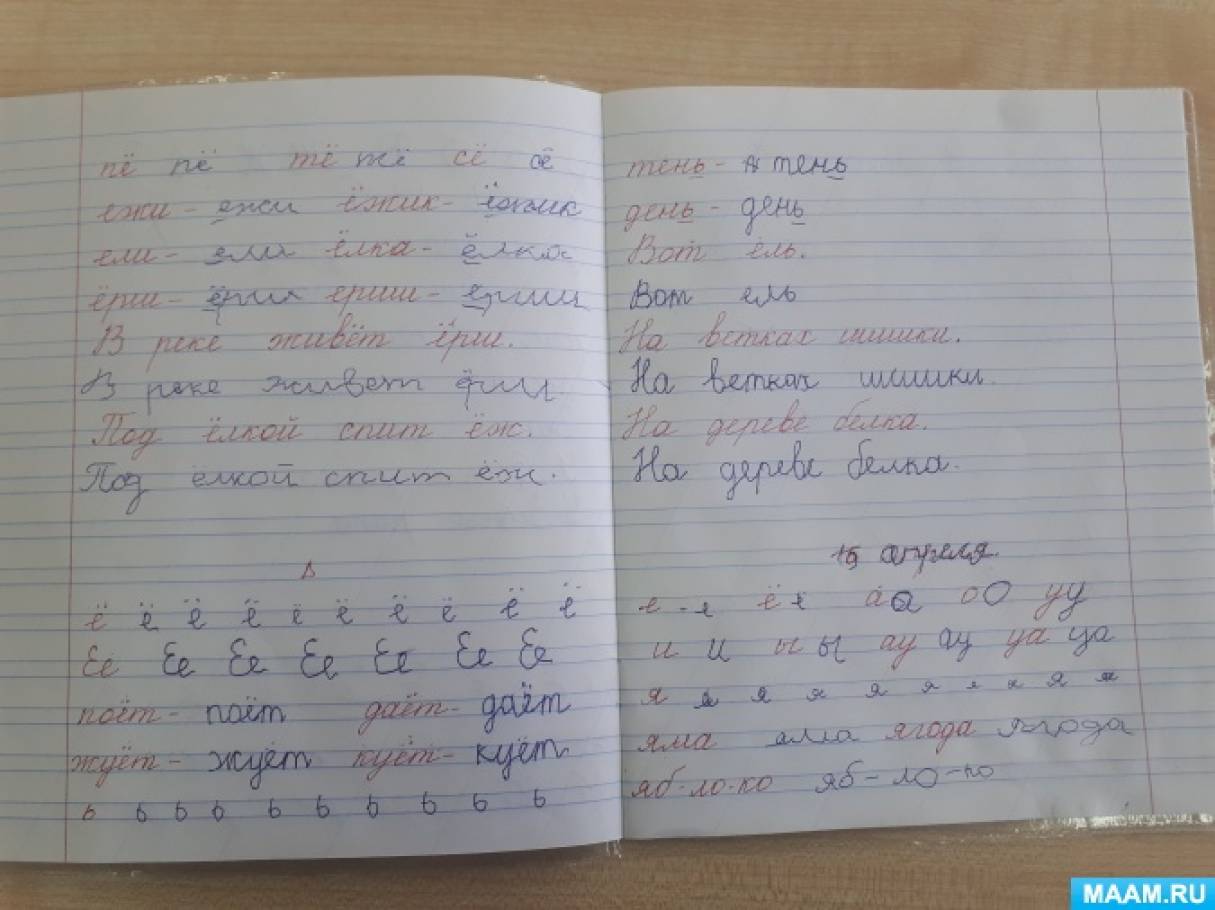 пё пё тё тё сё сё
ежи - ежи ёжик - ёжик
ели - ели ёлка - ёлка
ёрш - ёрш ерши - ерши
В реке живёт ёрш.
В реке живет ёрш.
Под ёлкой спит ёж.
Под ёлкой спит ёж.
ё ё ё ё ё ё ё ё ё ё
Ее Ее Ее Ее Ее Ее Ее
поёт - поёт даёт - даёт
жуёт - жуёт куёт - куёт
ь ь ь ь ь ь ь ь ь ь
тень - тень
день - день
Вот ель.
Вот ель
На ветках шишки.
На ветках шишки.
На дереве белка.
На дереве белка.
15 апреля.
е - е ё ё а а о о у у
и и ы ы ау ау уа уа
я я я я я я я я я я
яма яма ягода ягода
яб-ло-ко яб-ло-ко
MAAM.RU